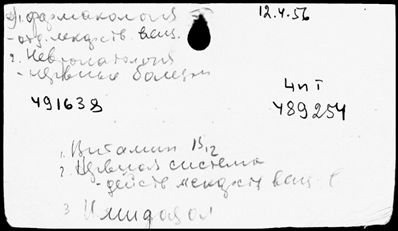 фармакология 12.4.56
- отд. лекарств. вещ.
2. Невропатология
- нервные болезни
491638
4пт
489254
1. Витамин B12
2. Нервная система
- действ лекарств вещ-в
3 Имидазол